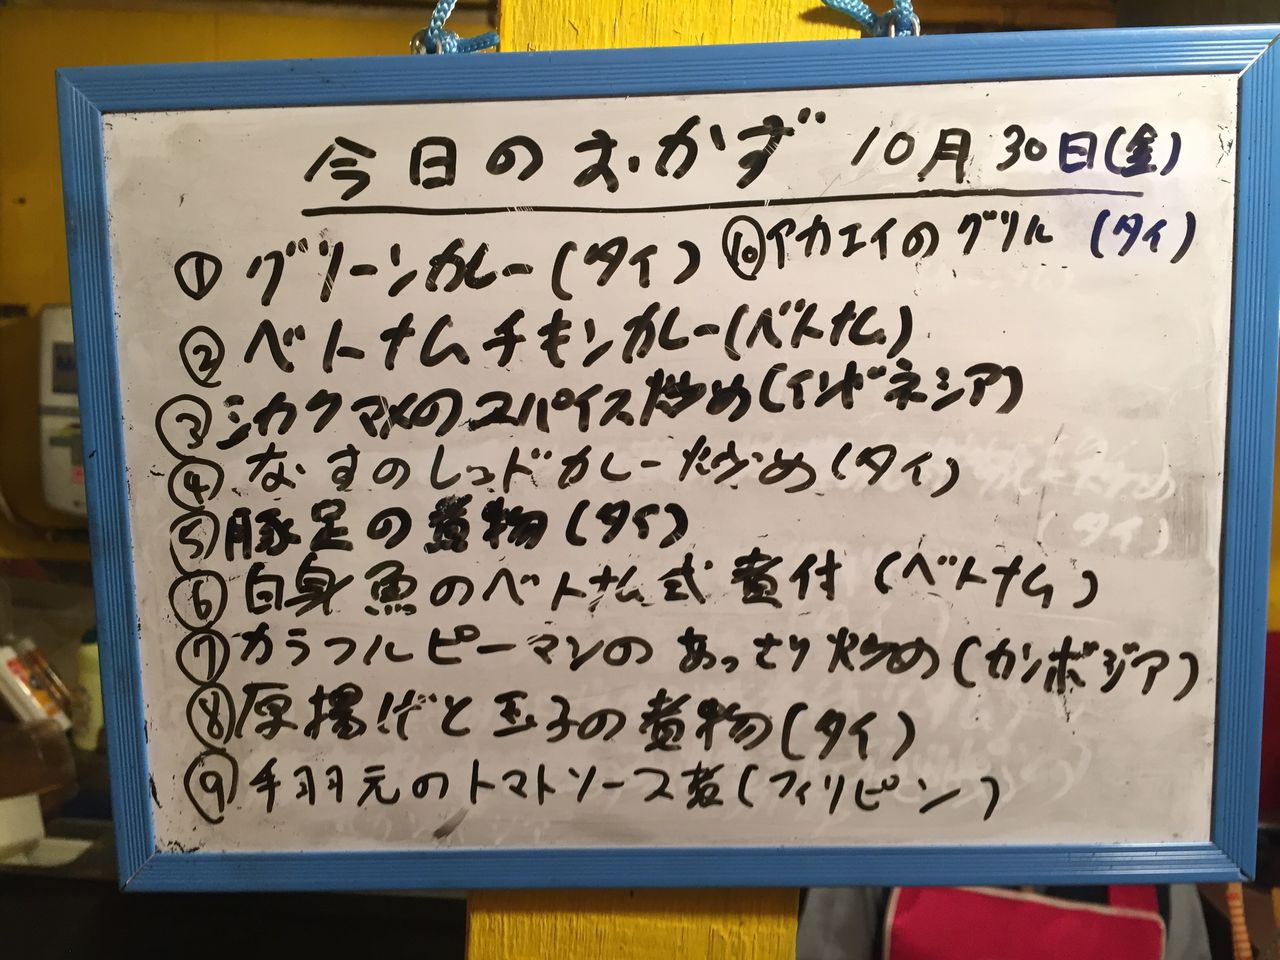 今日のおかず 10月30日(金)
① グリーンカレー(タイ)
⑩アカエイのグリル (タイ)
② ベトナムチキンカレー(ベトナム)
③シカクマメのスパイス炒め(インドネシア)
④ なすのレッドカレー炒め(タイ)
⑤豚足の煮物(タイ)
⑥ 白身魚のベトナム式煮付(ベトナム)
⑦カラフルピーマンのあっさり炒め(カンボジア)
⑧厚揚げと玉子の煮物(タイ)
⑨手羽元のトマトソース煮(フィリピン)